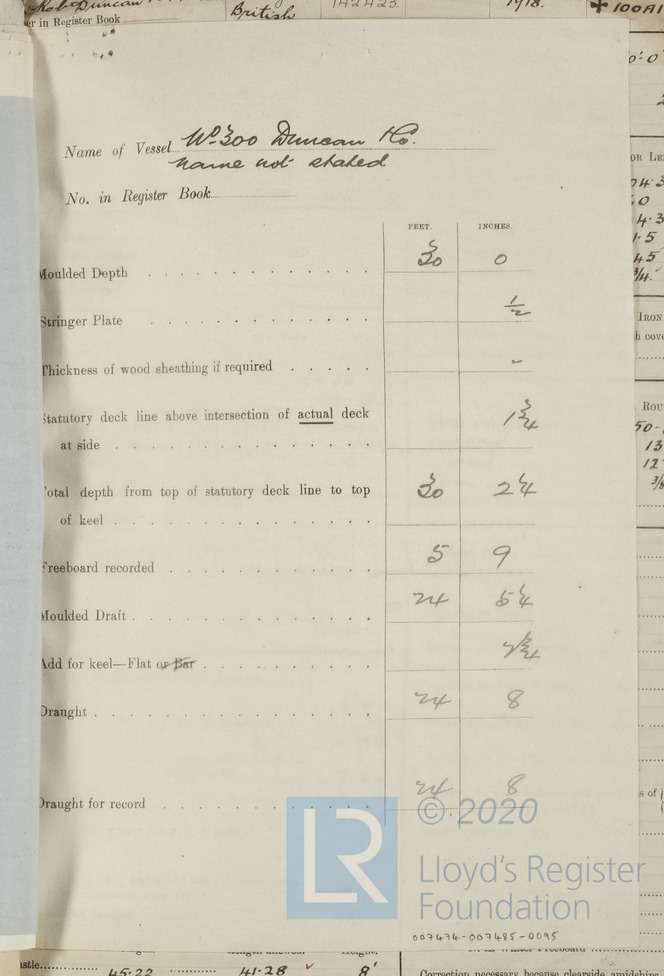 Robt Duncan
British
142423
1918.
✠ 100A1
er in Register Book
Name of Vessel No 300 Duncan & Co.
name not stated
No. in Register Book
FEET. INCHES.
Moulded Depth 30 0
Stringer Plate 1/2
Thickness of wood sheathing if required -
Statutory deck line above intersection of actual deck
at side 1 3/4
Total depth from top of statutory deck line to top
of keel 30 2 1/4
Freeboard recorded 5 9
Moulded Draft 24 5 1/4
Add for keel—Flat or Bar 2 3/4
Draught 24 8
Draught for record 24 8
LR
© 2020
Lloyd's Register
Foundation
007474-007485-0095
IRON
h cove
ROU
50-
13
12
3/8
s of
45.22 41.28 ✓ 8'
Correction necessary because clearside amidships